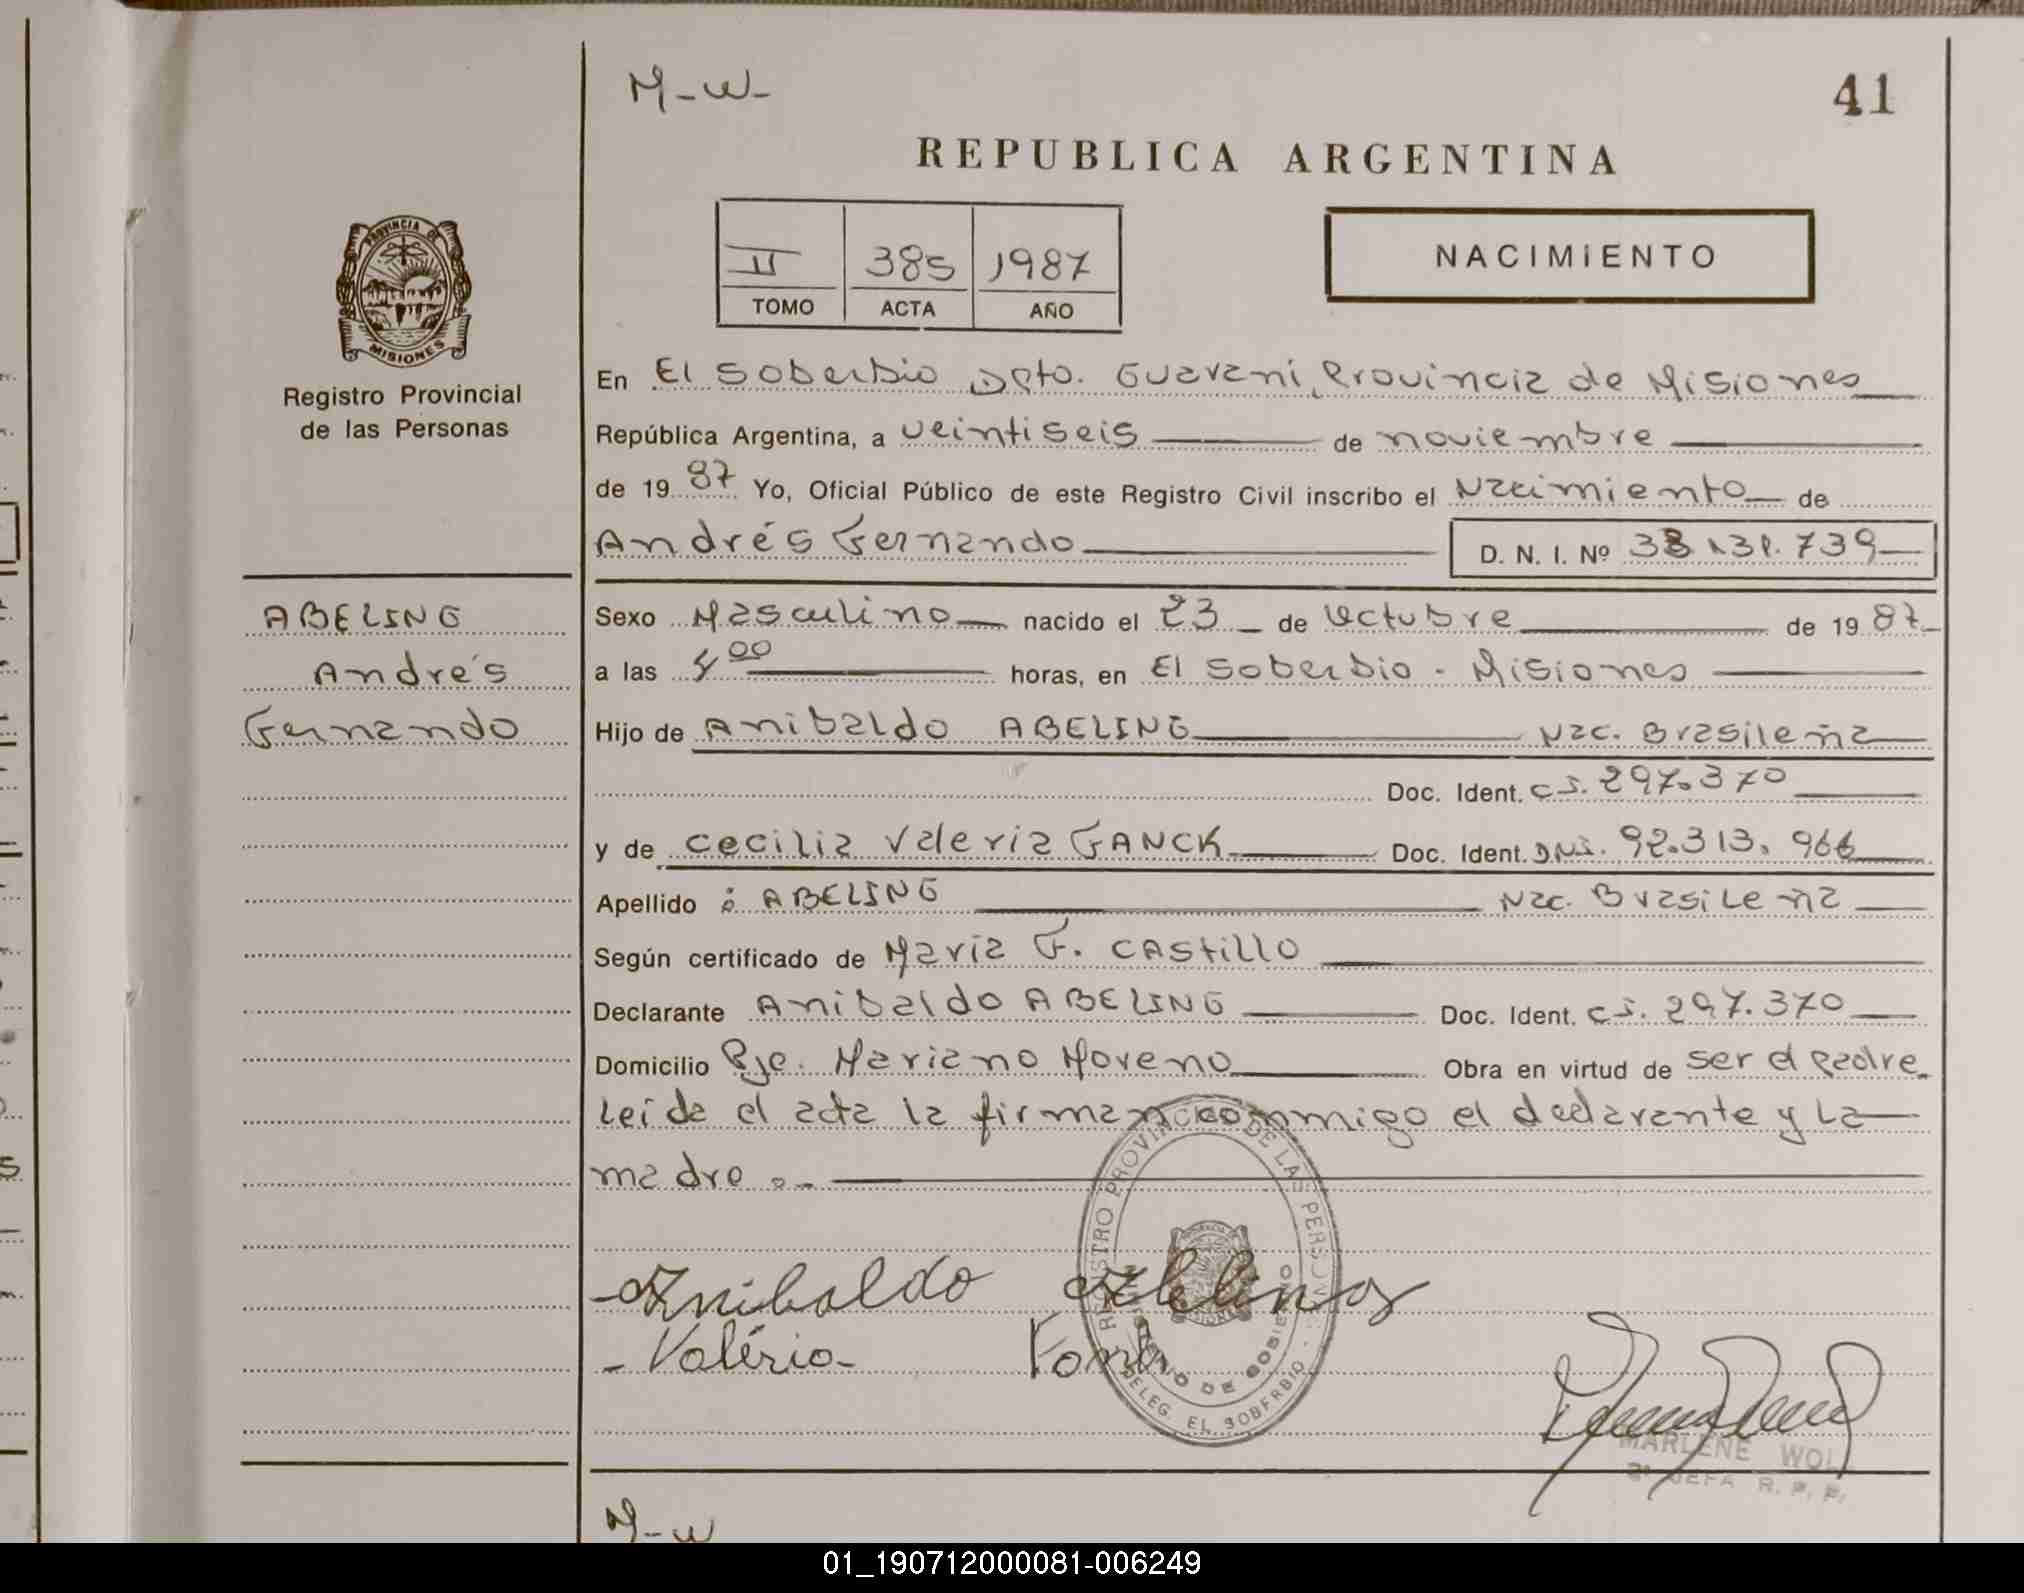 M-W-
41
REPUBLICA ARGENTINA
II 385 1987
TOMO ACTA AÑO
NACIMIENTO
PROVINCIA DE
MISIONES
Registro Provincial
de las Personas
En El Soberbio Dpto. Guaraní, Provincia de Misiones
República Argentina, a veintiseis de noviembre
de 19 87 Yo, Oficial Público de este Registro Civil inscribo el Nacimiento de
Andrés Fernando D. N. I. Nº
ABELING
Andrés
Fernando
Sexo Masculino nacido el 23 de Octubre de 19 87
a las 4 00 horas, en El Soberbio - Misiones
Hijo de Anibaldo ABELING Nac. Brasileña
Doc. Ident. C.I. 297.370
y de Cecilia Valeria FANCK Doc. Ident. DNI. 92.313.966
Apellido : ABELING Nac. Brasileña
Según certificado de María F. CAStillo
Declarante Anibaldo ABELING Doc. Ident. C.I. 297.370
Domicilio Pje. Mariano Moreno Obra en virtud de ser el padre
Leida el acta la firman conmigo el declarante y la
madre.-
REGISTRO PROVINCIAL DE LAS PERSONAS
MINISTERIO DE GOBIERNO
DELEG. EL SOBERBIO
Anibaldo Abeling
Valéria
MARLENE WOLL
JEFA R. P. P.
M-W
01_190712000081-006249